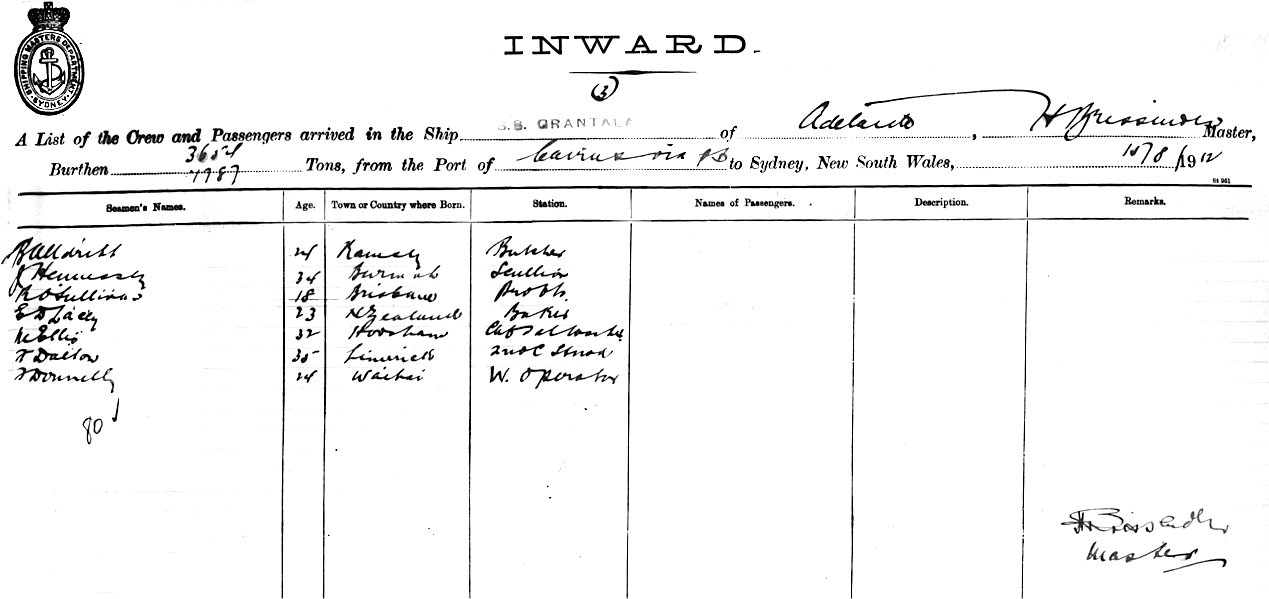 SHIPPING MASTERS DEPARTMENT SYDNEY
INWARD.
3
A List of the Crew and Passengers arrived in the Ship S.S. GRANTALA of Adelaide, H Brissenden Master,
Burthen 3654 Tons, from the Port of Cairns via to Sydney, New South Wales, 10/8/1912
Seamen's Names. Age. Town or Country where Born. Station. Names of Passengers. Description. Remarks.
24 Ramsey Butcher
J Hennessy 34 Burmah Scullion
R O'Sullivan 18 Brisbane
E D Lacey 23 N Zealand Baker
W Ellis 32 Horsham
T Dalton 35 Limerick 2nd C Steward
T Donnelly 24 Waihi W. Operator
80
Master